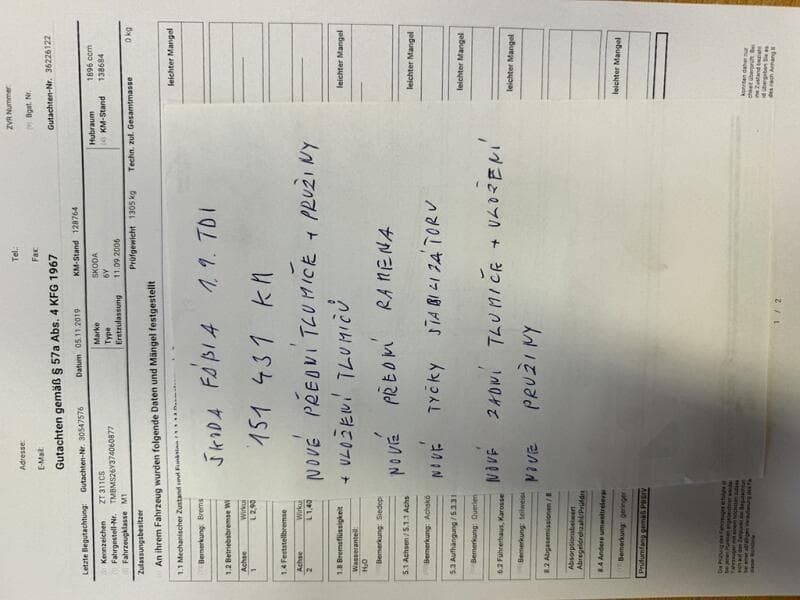 ZVR Nummer:
Tel.:
Fax:
Adresse:
E-Mail:
Bgst. Nr.
Gutachten gemäß § 57a Abs. 4 KFG 1967
Gutachten-Nr. 36226122
Letzte Begutachtung: Gutachten-Nr. 30547576 Datum 05.11.2019 KM-Stand 128764
Kennzeichen ZT 311CS Marke SKODA Hubraum 1896 ccm
Fahrgestell-Nr. TMBMS26Y374060877 Type 6Y KM-Stand 138684
Fahrzeugklasse M1 Erstzulassung 11.09.2006
Zulassungsbesitzer Prüfgewicht 1305 kg Techn. zul. Gesamtmasse 0 kg
An ihrem Fahrzeug wurden folgende Daten und Mängel festgestellt
1.1 Mechanischer Zustand und Funktion leichter Mangel
Bemerkung: Brems
1.2 Betriebsbremse Wi
Achse Wirku
1 L 2,90
1.4 Feststellbremse
Achse Wirku
2 L 1,40
1.8 Bremsflüssigkeit leichter Mangel
Wasseranteil:
H₂O
Bemerkung:
5.1 Achsen / 5.1.1 Achs leichter Mangel
Bemerkung: Achskö
5.3 Aufhängung / 5.3.3 leichter Mangel
Bemerkung: Querlen
6.2 Führerhaus, Karosse leichter Mangel
Bemerkung:
8.2 Abgasemissionen / 8
Absorptionsbeiwert
Abregeldrehzahl/Prüfdre
8.4 Andere umweltreleva leichter Mangel
Bemerkung: geringer
Prüfumfang gemäß
ŠKODA FÁBIA 1.9. TDI
151 431 KM
NOVÉ PŘEDNÍ TLUMIČE + PRUŽINY
+ ULOŽENÍ TLUMIČŮ
NOVÉ PŘEDNÍ RAMENA
NOVÉ TYČKY STABILIZÁTORU
NOVÉ ZADNÍ TLUMIČE + ULOŽENÍ
NOVÉ PRUŽINY
1 / 2